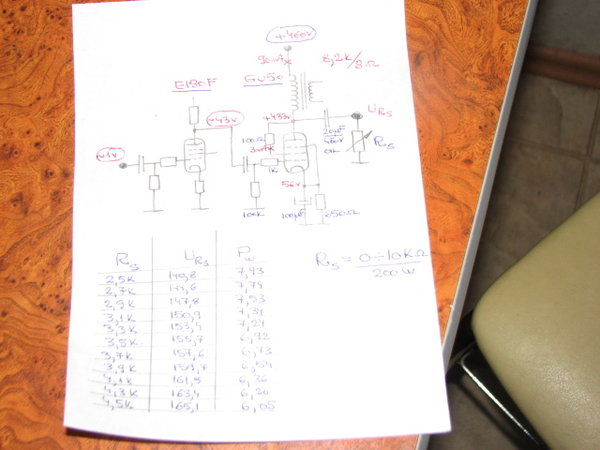 +460V
90mA
8,2K/8Ω
E180F
GU50
~43V
+433V
URs
~1V
100Ω
20µF
460V
Rs
1K
56V
100K
100µF
650Ω
Rs URs Pw
2,5K 140,8 7,93
2,7K 144,6 7,74
2,9K 147,8 7,53
3,1K 150,9 7,34
3,3K 153,4 7,24
3,5K 155,7 6,92
3,7K 157,6 6,73
3,9K 159,7 6,54
4,1K 161,5 6,36
4,3K 163,4 6,20
4,5K 165,1 6,05
Rs = 0÷10KΩ
200W